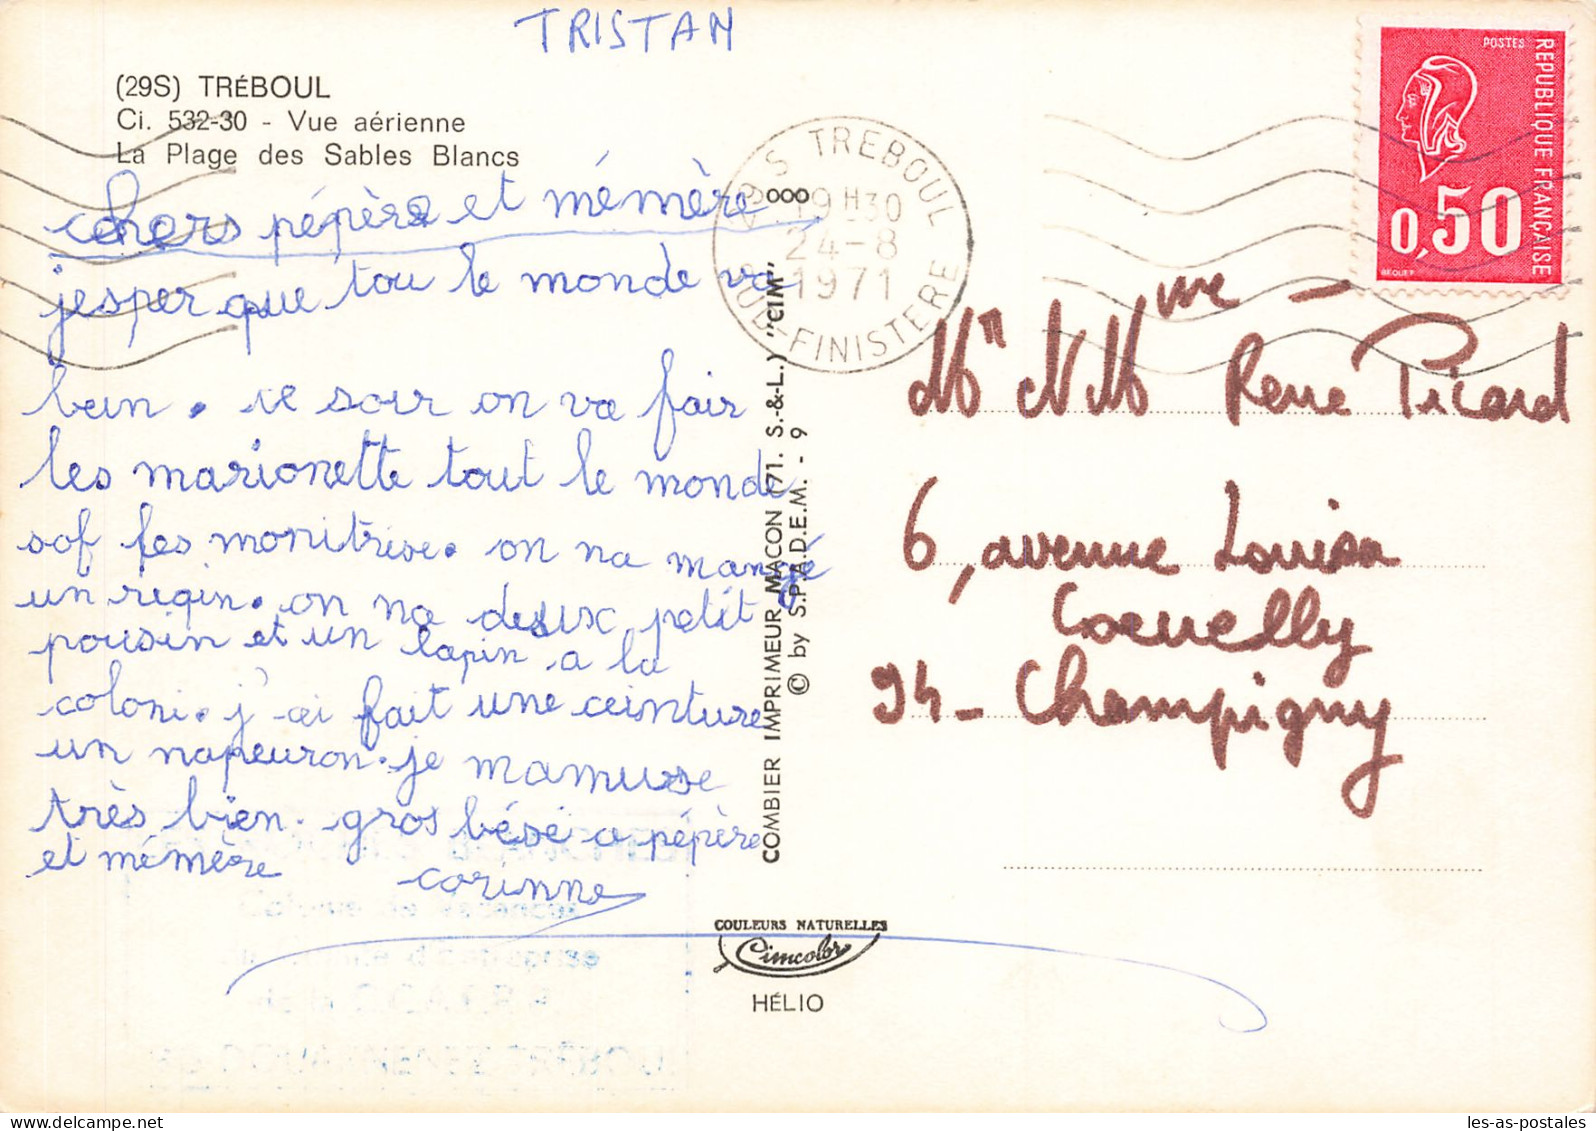 TRISTAN
(29S) TRÉBOUL
Ci. 532-30 - Vue aérienne
La Plage des Sables Blancs
chers pépère et mémère
jesper que tou le monde va
bien. ce soir on va fair
les marionette tout le monde
sof les monitrise. on na mangé
un reqin. on na deux petit
pousin et un lapin a la
coloni. j'ai fait une ceinture
un napeuron. je mamuse
très bien. gros bésé a pépère
et mémère corinne
29 S TREBOUL
19H30
24-8
1971
SUD-FINISTERE
COMBIER IMPRIMEUR MACON (71. S.-&-L.) "CIM"
© by S.P.A.D.E.M. - 9
COULEURS NATURELLES
Cimcolor
HÉLIO
POSTES
REPUBLIQUE FRANÇAISE
0,50
BEQUET
Mme
René Picard
6, avenue Louisa
94 - Champigny
les-as-postales